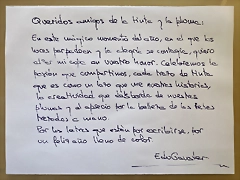 Queridos amigos de la tinta y la pluma:
En este mágico momento del año, en el que las
luces parpadean y la alegría se contagia, quiero
alzar mi copa en vuestro honor. Celebremos la
pasión que compartimos, cada trazo de tinta
que es como un lazo que une nuestras historias,
la creatividad que desborda de nuestras
plumas y el aprecio por la belleza de las letras
trazadas a mano.
Por las letras que están por escribirse, por
un feliz año lleno de color.